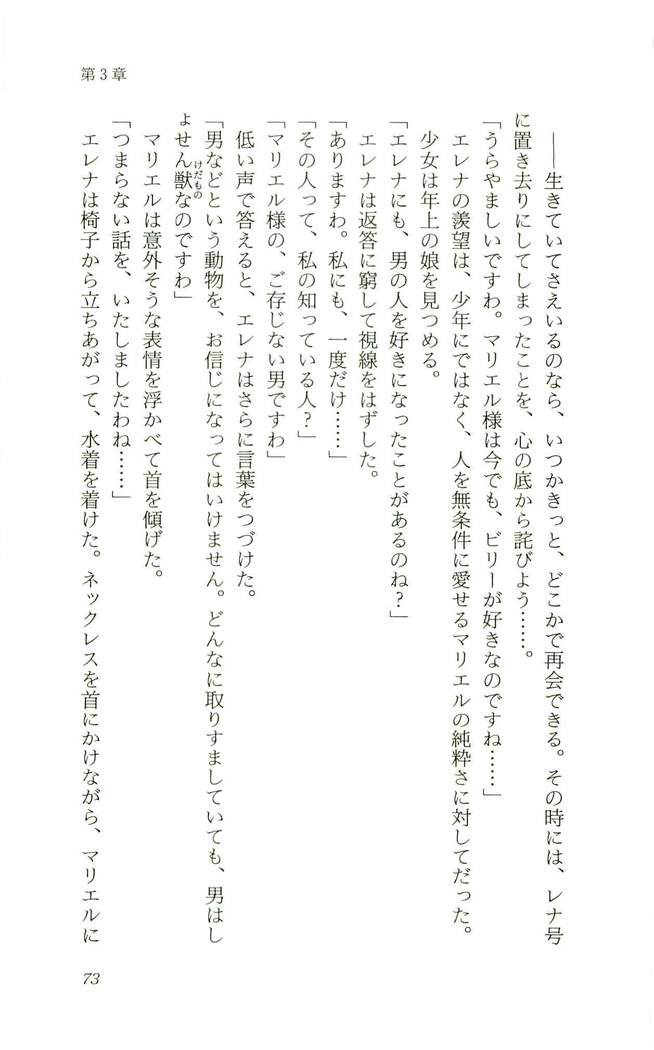 第3章
――生きていてさえいるのなら、いつかきっと、どこかで再会できる。その時には、レナ号
に置き去りにしてしまったことを、心の底から詫びよう……。
「うらやましいですわ。マリエル様は今でも、ビリーが好きなのですね……」
エレナの羨望は、少年にではなく、人を無条件に愛せるマリエルの純粋さに対してだった。
少女は年上の娘を見つめる。
「エレナにも、男の人を好きになったことがあるのね？」
エレナは返答に窮して視線をはずした。
「ありますわ。私にも、一度だけ……」
「その人って、私の知っている人？」
「マリエル様の、ご存じない男ですわ」
低い声で答えると、エレナはさらに言葉をつづけた。
「男などという動物を、お信じになってはいけません。どんなに取りすましていても、男はし
ょせん獣なのですわ」
けだもの
マリエルは意外そうな表情を浮かべて首を傾げた。
「つまらない話を、いたしましたわね……」
エレナは椅子から立ちあがって、水着を着けた。ネックレスを首にかけながら、マリエルに
73